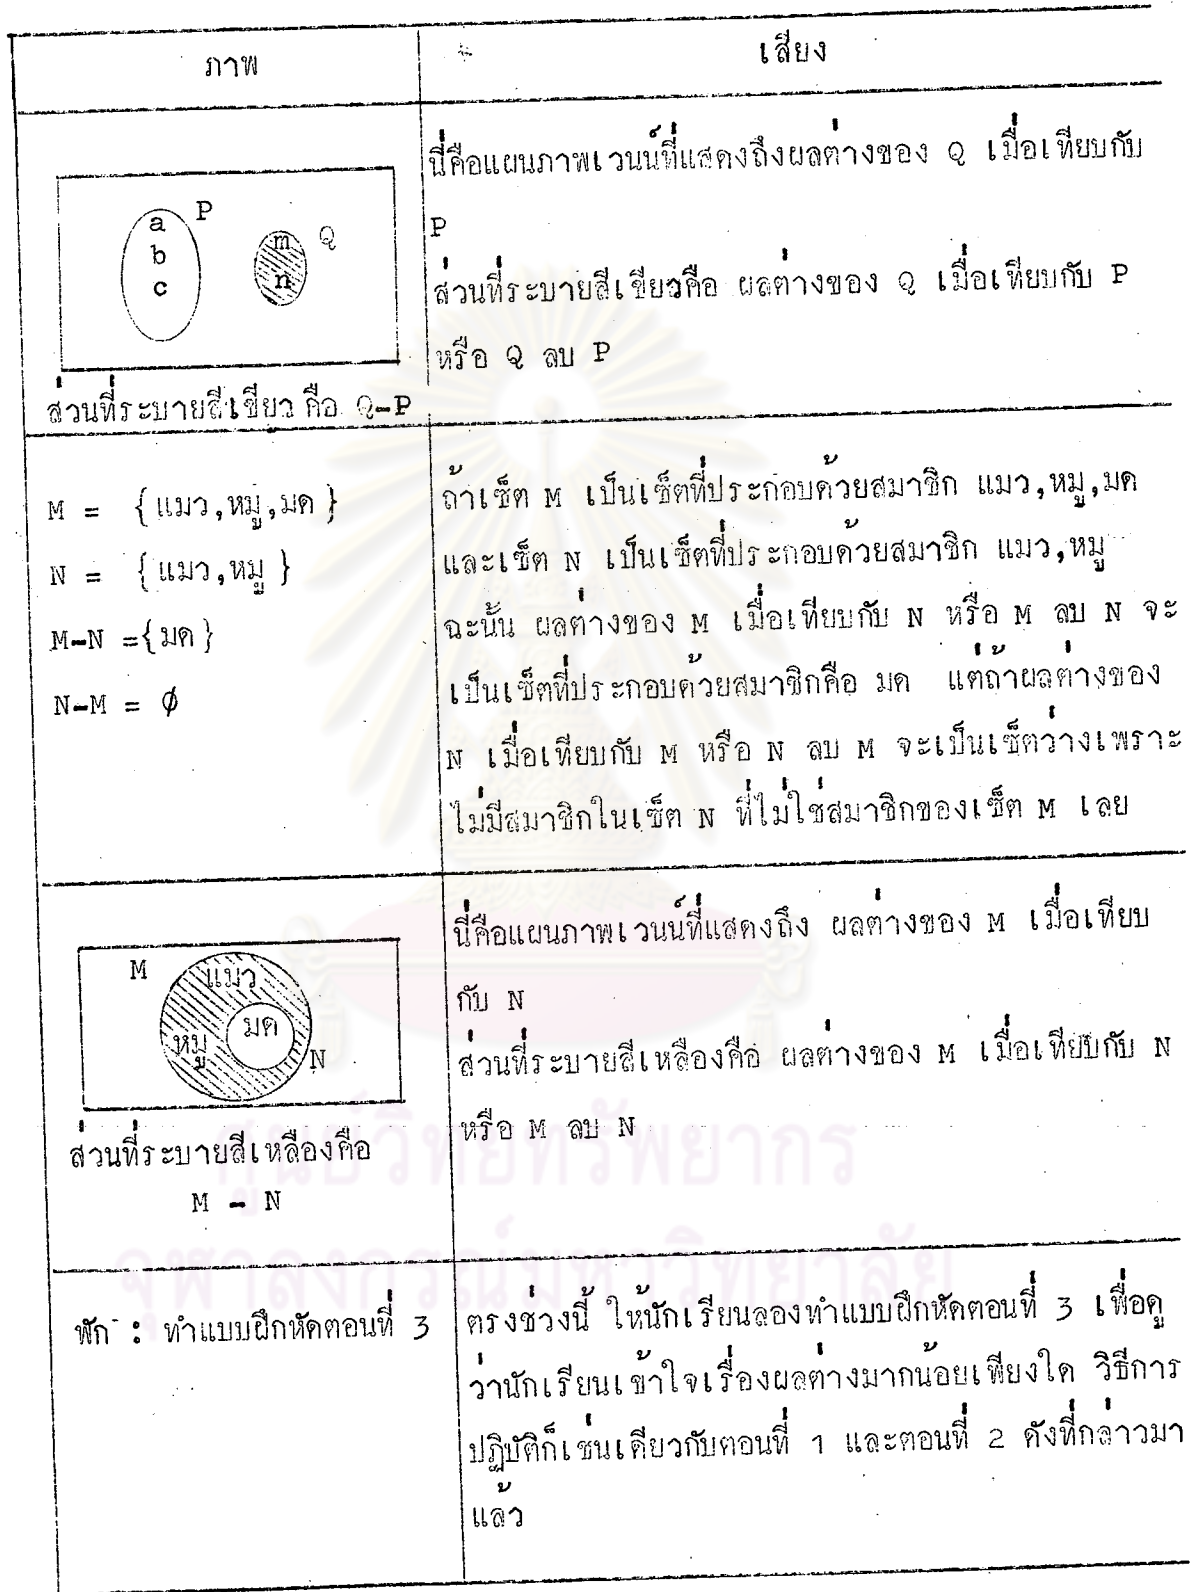 ภาพ
เสียง
a P
b
c
m Q
n
ส่วนที่ระบายสีเขียว คือ Q-P
นี่คือแผนภาพเวนน์ที่แสดงถึงผลต่างของ Q เมื่อเทียบกับ
P
ส่วนที่ระบายสีเขียวคือ ผลต่างของ Q เมื่อเทียบกับ P
หรือ Q ลบ P
M = {แมว,หมู,มด}
N = {แมว,หมู}
M-N ={มด}
N-M = ∅
ถ้าเซ็ต M เป็นเซ็ตที่ประกอบด้วยสมาชิก แมว,หมู,มด
และเซ็ต N เป็นเซ็ตที่ประกอบด้วยสมาชิก แมว,หมู
ฉะนั้น ผลต่างของ M เมื่อเทียบกับ N หรือ M ลบ N จะ
เป็นเซ็ตที่ประกอบด้วยสมาชิกคือ มด แต่ถ้าผลต่างของ
N เมื่อเทียบกับ M หรือ N ลบ M จะเป็นเซ็ตว่างเพราะ
ไม่มีสมาชิกในเซ็ต N ที่ไม่ใช่สมาชิกของเซ็ต M เลย
M แมว
มด
หมู N
ส่วนที่ระบายสีเหลืองคือ
M - N
นี่คือแผนภาพเวนน์ที่แสดงถึง ผลต่างของ M เมื่อเทียบ
กับ N
ส่วนที่ระบายสีเหลืองคือ ผลต่างของ M เมื่อเทียบกับ N
หรือ M ลบ N
พัก : ทำแบบฝึกหัดตอนที่ 3
ตรงช่วงนี้ ให้นักเรียนลองทำแบบฝึกหัดตอนที่ 3 เพื่อดู
ว่านักเรียนเข้าใจเรื่องผลต่างมากน้อยเพียงใด วิธีการ
ปฏิบัติก็เช่นเดียวกับตอนที่ 1 และตอนที่ 2 ดังที่กล่าวมา
แล้ว
ศูนย์วิทยทรัพยากร
จุฬาลงกรณ์มหาวิทยาลัย